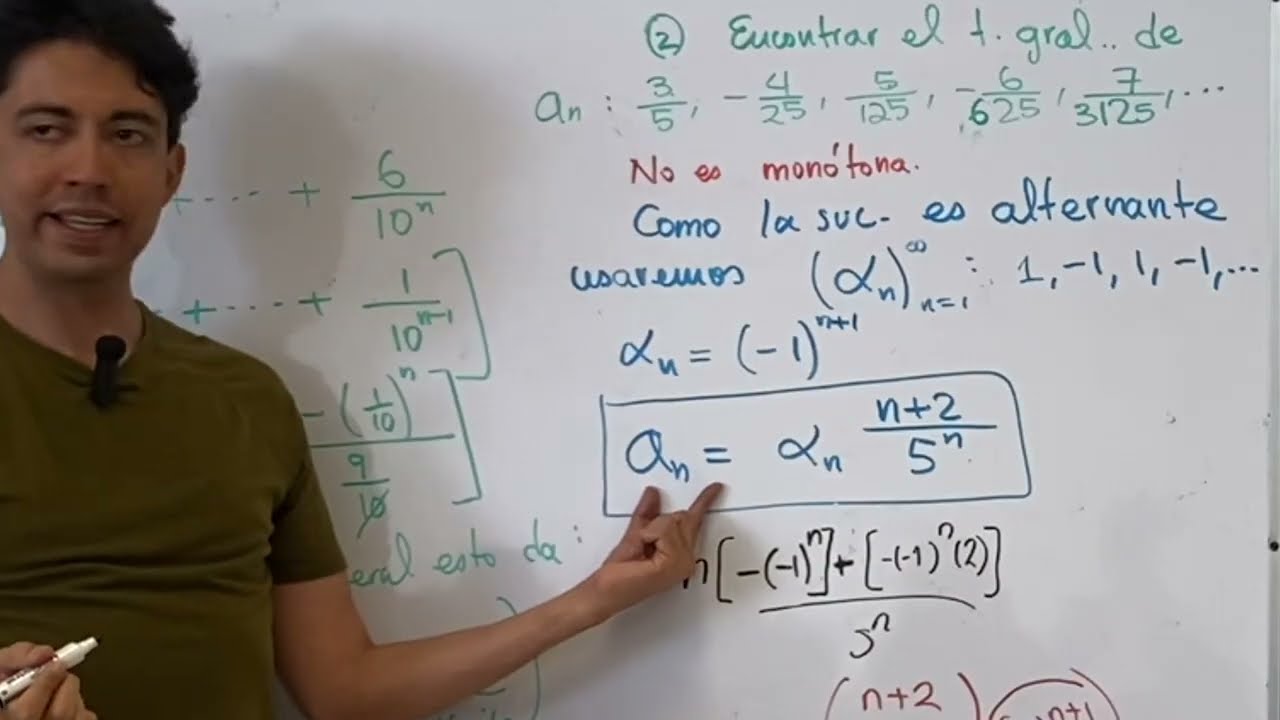 ② Encontrar el t. gral.. de
an : 3/5, -4/25, 5/125, -6/625, 7/3125, ...
No es monótona.
Como la suc. es alternante
usaremos (αn)_{n=1}^∞ : 1, -1, 1, -1, ...
αn = (-1)^{n+1}
an = αn (n+2)/5^n
n[-(-1)^n]+[-(-1)^n(2)]
5^n
n+2
n+1
... + 6/10^n
+ ... + 1/10^{n-1}]
- (1/10)^n]
9/10
eral esto da: